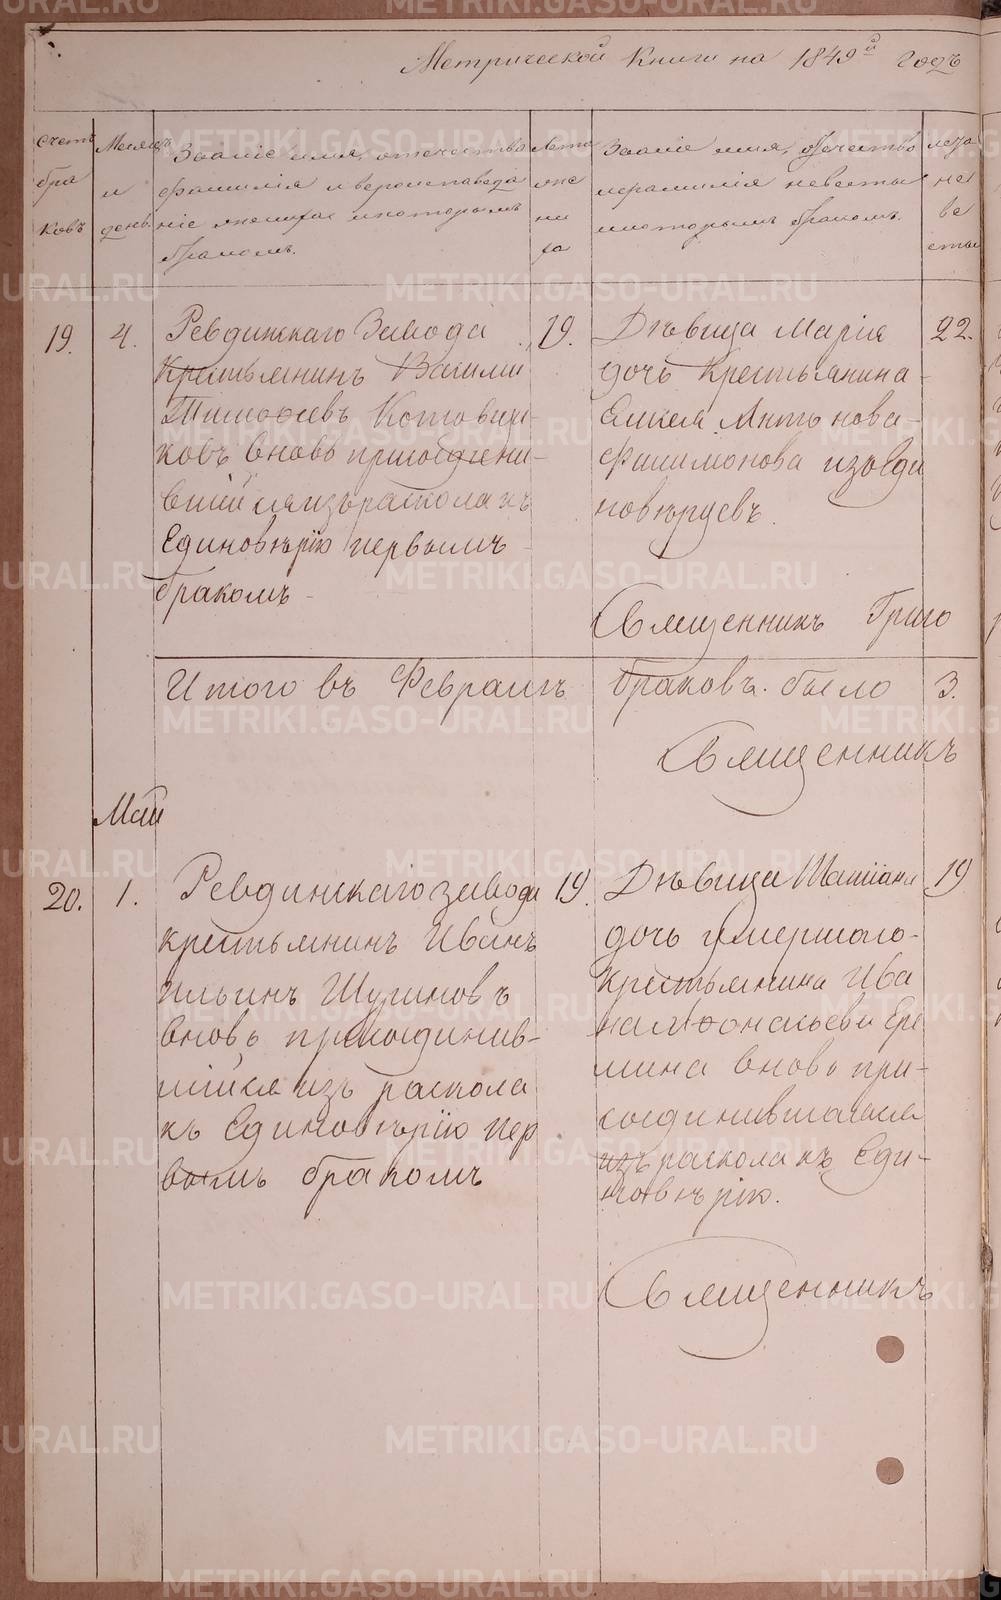 Метрической Книги на 1849й годъ
Счетъ
бра
ковъ
Месяцъ
и
день.
Званіе имя, отечество
фамилія и вероисповеда
ніе жениха и которымъ
бракомъ.
Лета
же
ни
ха
Званіе имя, отечество
и фамилія невесты
и которымъ бракомъ.
лета
не
ве
сты
19.
4.
Ревдинскаго Завода
Крестьянинъ Василий
Тимофеевъ Котовщи-
ковъ вновь присоедини-
вшійся изъ раскола къ
Единоверію первымъ
бракомъ
19.
Девица Марія
дочь Крестьянина
Антонова
Филимонова изъ еди
новерцевъ.
22.
Священникъ Григо
Итого въ Феврале браковъ было 3.
Священникъ
Май
20.
1.
Ревдинскаго завода
крестьянинъ Иванъ
Ильинъ
вновь присоединив-
шійся изъ раскола
къ Единоверію пер
вымъ бракомъ
19.
Девица Татіана
дочь умершаго
Крестьянина Ива
на Афонасьева Ере
мина вновь при-
соединившаяся
изъ раскола къ Еди-
новерію.
19
Священникъ
METRIKI.GASO-URAL.RU